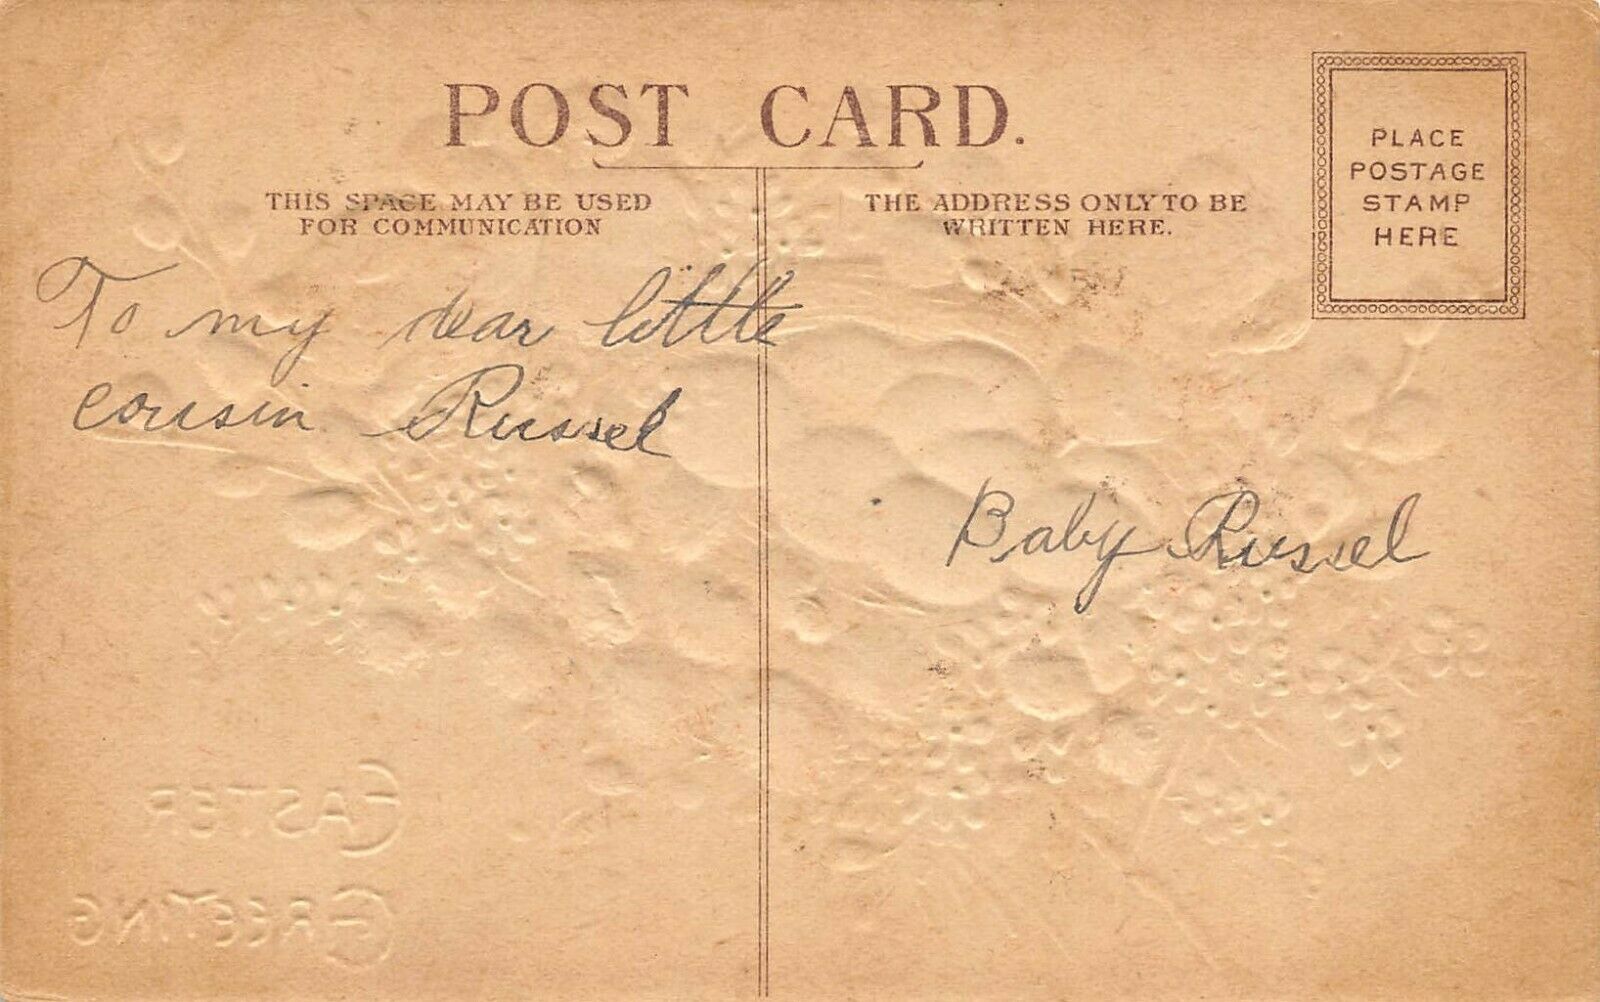 POST CARD.
THIS SPACE MAY BE USED
FOR COMMUNICATION
THE ADDRESS ONLY TO BE
WRITTEN HERE.
PLACE
POSTAGE
STAMP
HERE
To my dear little
cousin Russel
Baby Russel
EASTER
GREETING